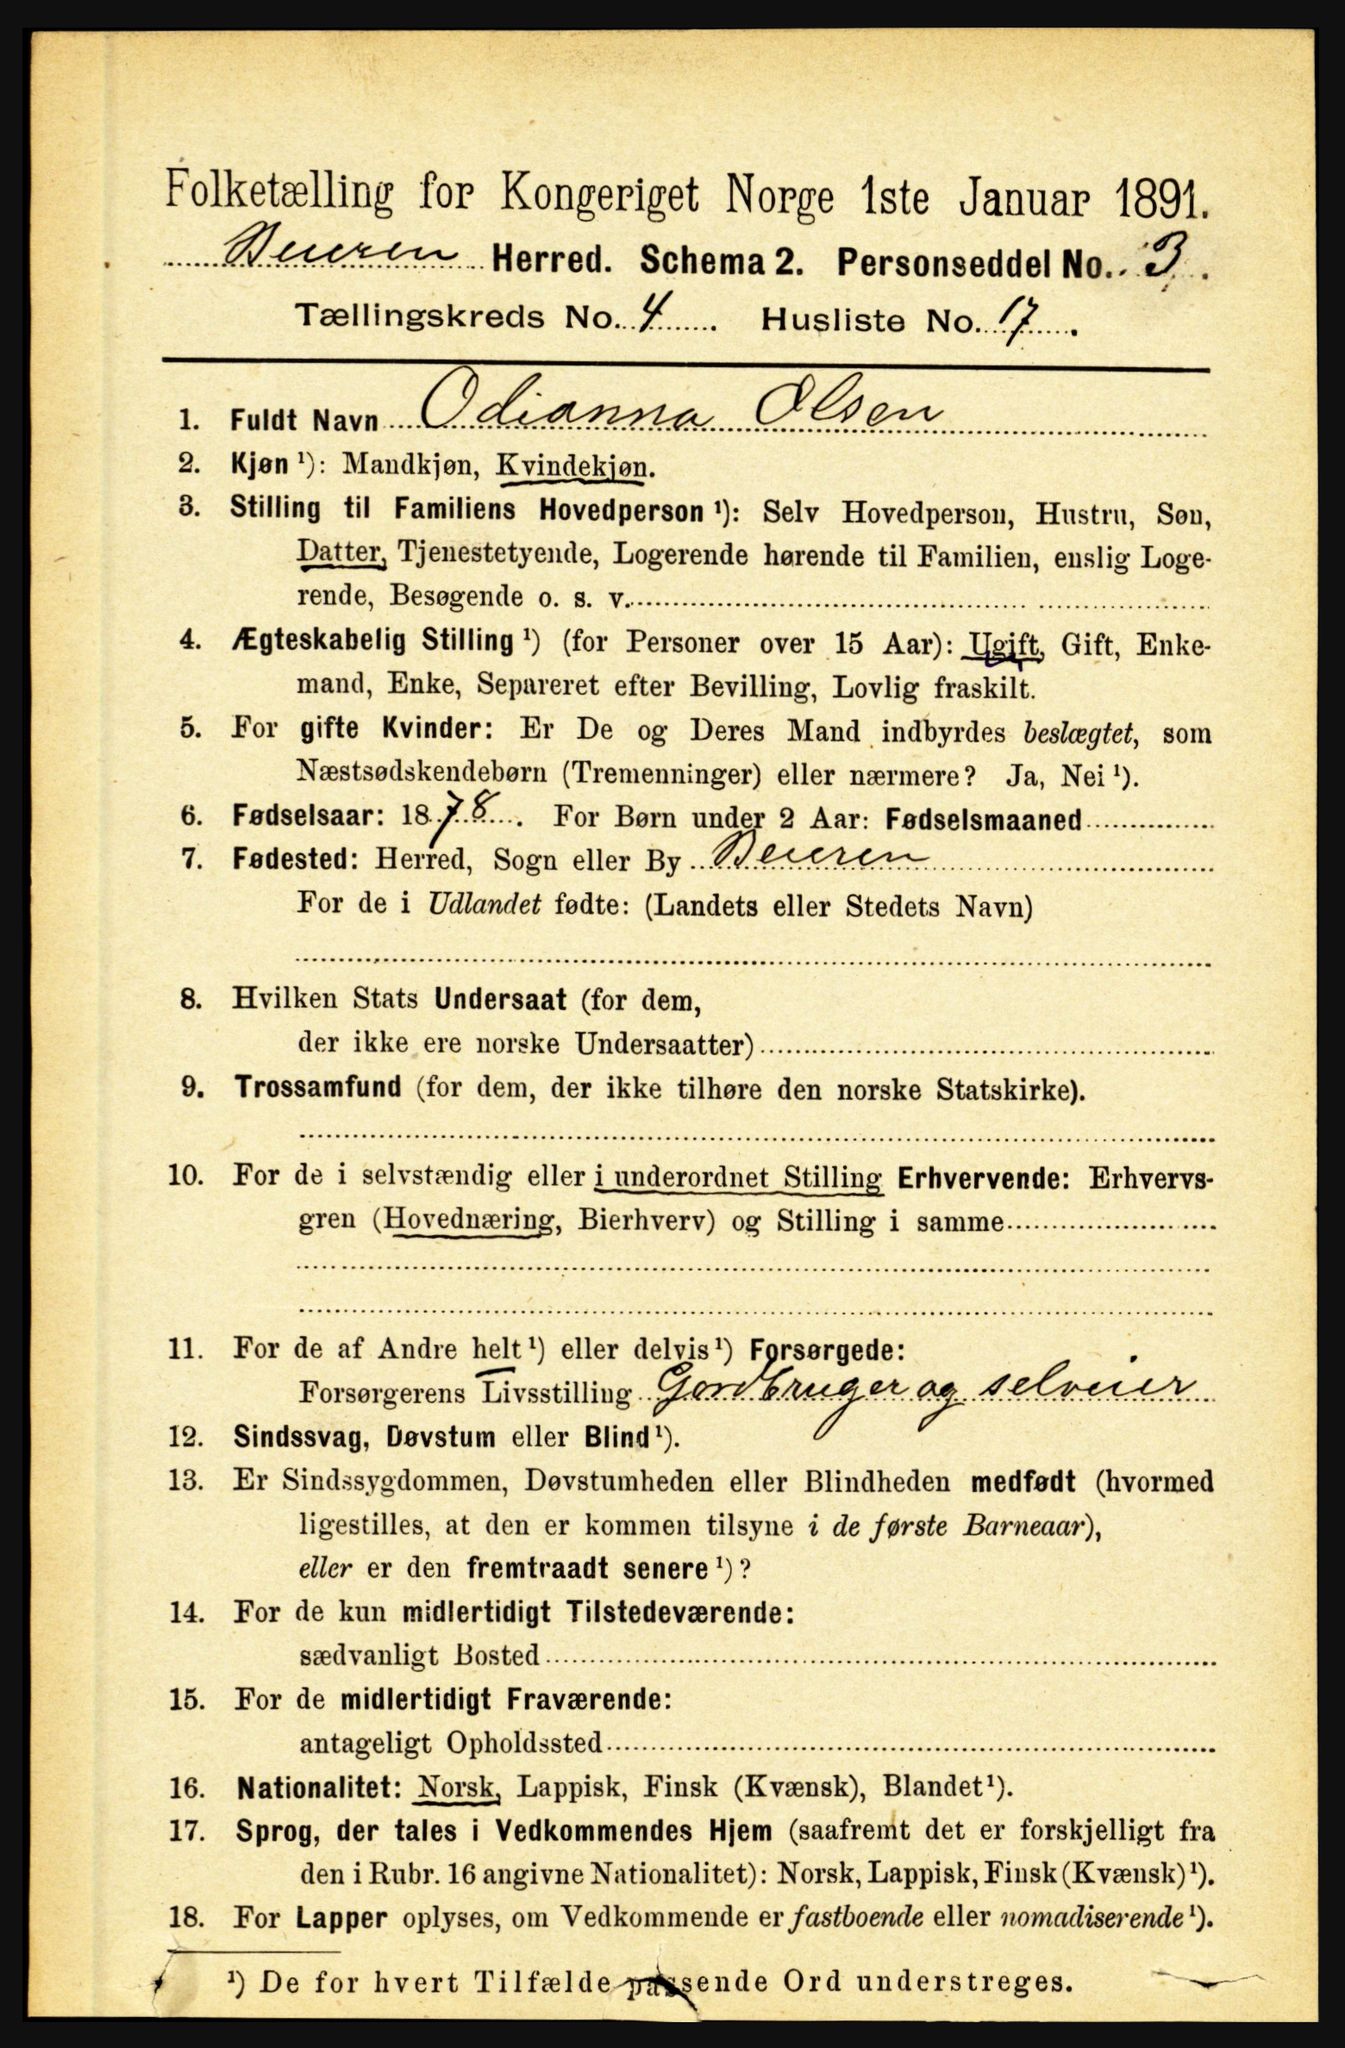 Folketælling for Kongeriget Norge 1ste Januar 1891.
Beieren Herred. Schema 2. Personseddel No. 3.
Tællingskreds No. 4. Husliste No. 17.
1. Fuldt Navn Odianna Olsen
2. Kjøn ¹): Mandkjøn, Kvindekjøn.
3. Stilling til Familiens Hovedperson ¹): Selv Hovedperson, Hustru, Søn,
Datter, Tjenestetyende, Logerende hørende til Familien, enslig Loge-
rende, Besøgende o. s. v.
4. Ægteskabelig Stilling ¹) (for Personer over 15 Aar): Ugift, Gift, Enke-
mand, Enke, Separeret efter Bevilling, Lovlig fraskilt.
5. For gifte Kvinder: Er De og Deres Mand indbyrdes beslægtet, som
Næstsødskendebørn (Tremenninger) eller nærmere? Ja, Nei ¹).
6. Fødselsaar: 1878. For Børn under 2 Aar: Fødselsmaaned
7. Fødested: Herred, Sogn eller By Beieren
For de i Udlandet fødte: (Landets eller Stedets Navn)
8. Hvilken Stats Undersaat (for dem,
der ikke ere norske Undersaatter)
9. Trossamfund (for dem, der ikke tilhøre den norske Statskirke).
10. For de i selvstændig eller i underordnet Stilling Erhvervende: Erhvervs-
gren (Hovednæring, Bierhverv) og Stilling i samme
11. For de af Andre helt ¹) eller delvis ¹) Forsørgede:
Forsørgerens Livsstilling Gordbruger og selveier
12. Sindssvag, Døvstum eller Blind ¹).
13. Er Sindssygdommen, Døvstumheden eller Blindheden medfødt (hvormed
ligestilles, at den er kommen tilsyne i de første Barneaar),
eller er den fremtraadt senere ¹)?
14. For de kun midlertidigt Tilstedeværende:
sædvanligt Bosted
15. For de midlertidigt Fraværende:
antageligt Opholdssted
16. Nationalitet: Norsk, Lappisk, Finsk (Kvænsk), Blandet ¹).
17. Sprog, der tales i Vedkommendes Hjem (saafremt det er forskjelligt fra
den i Rubr. 16 angivne Nationalitet): Norsk, Lappisk, Finsk (Kvænsk) ¹).
18. For Lapper oplyses, om Vedkommende er fastboende eller nomadiserende ¹).
¹) De for hvert Tilfælde passende Ord understreges.